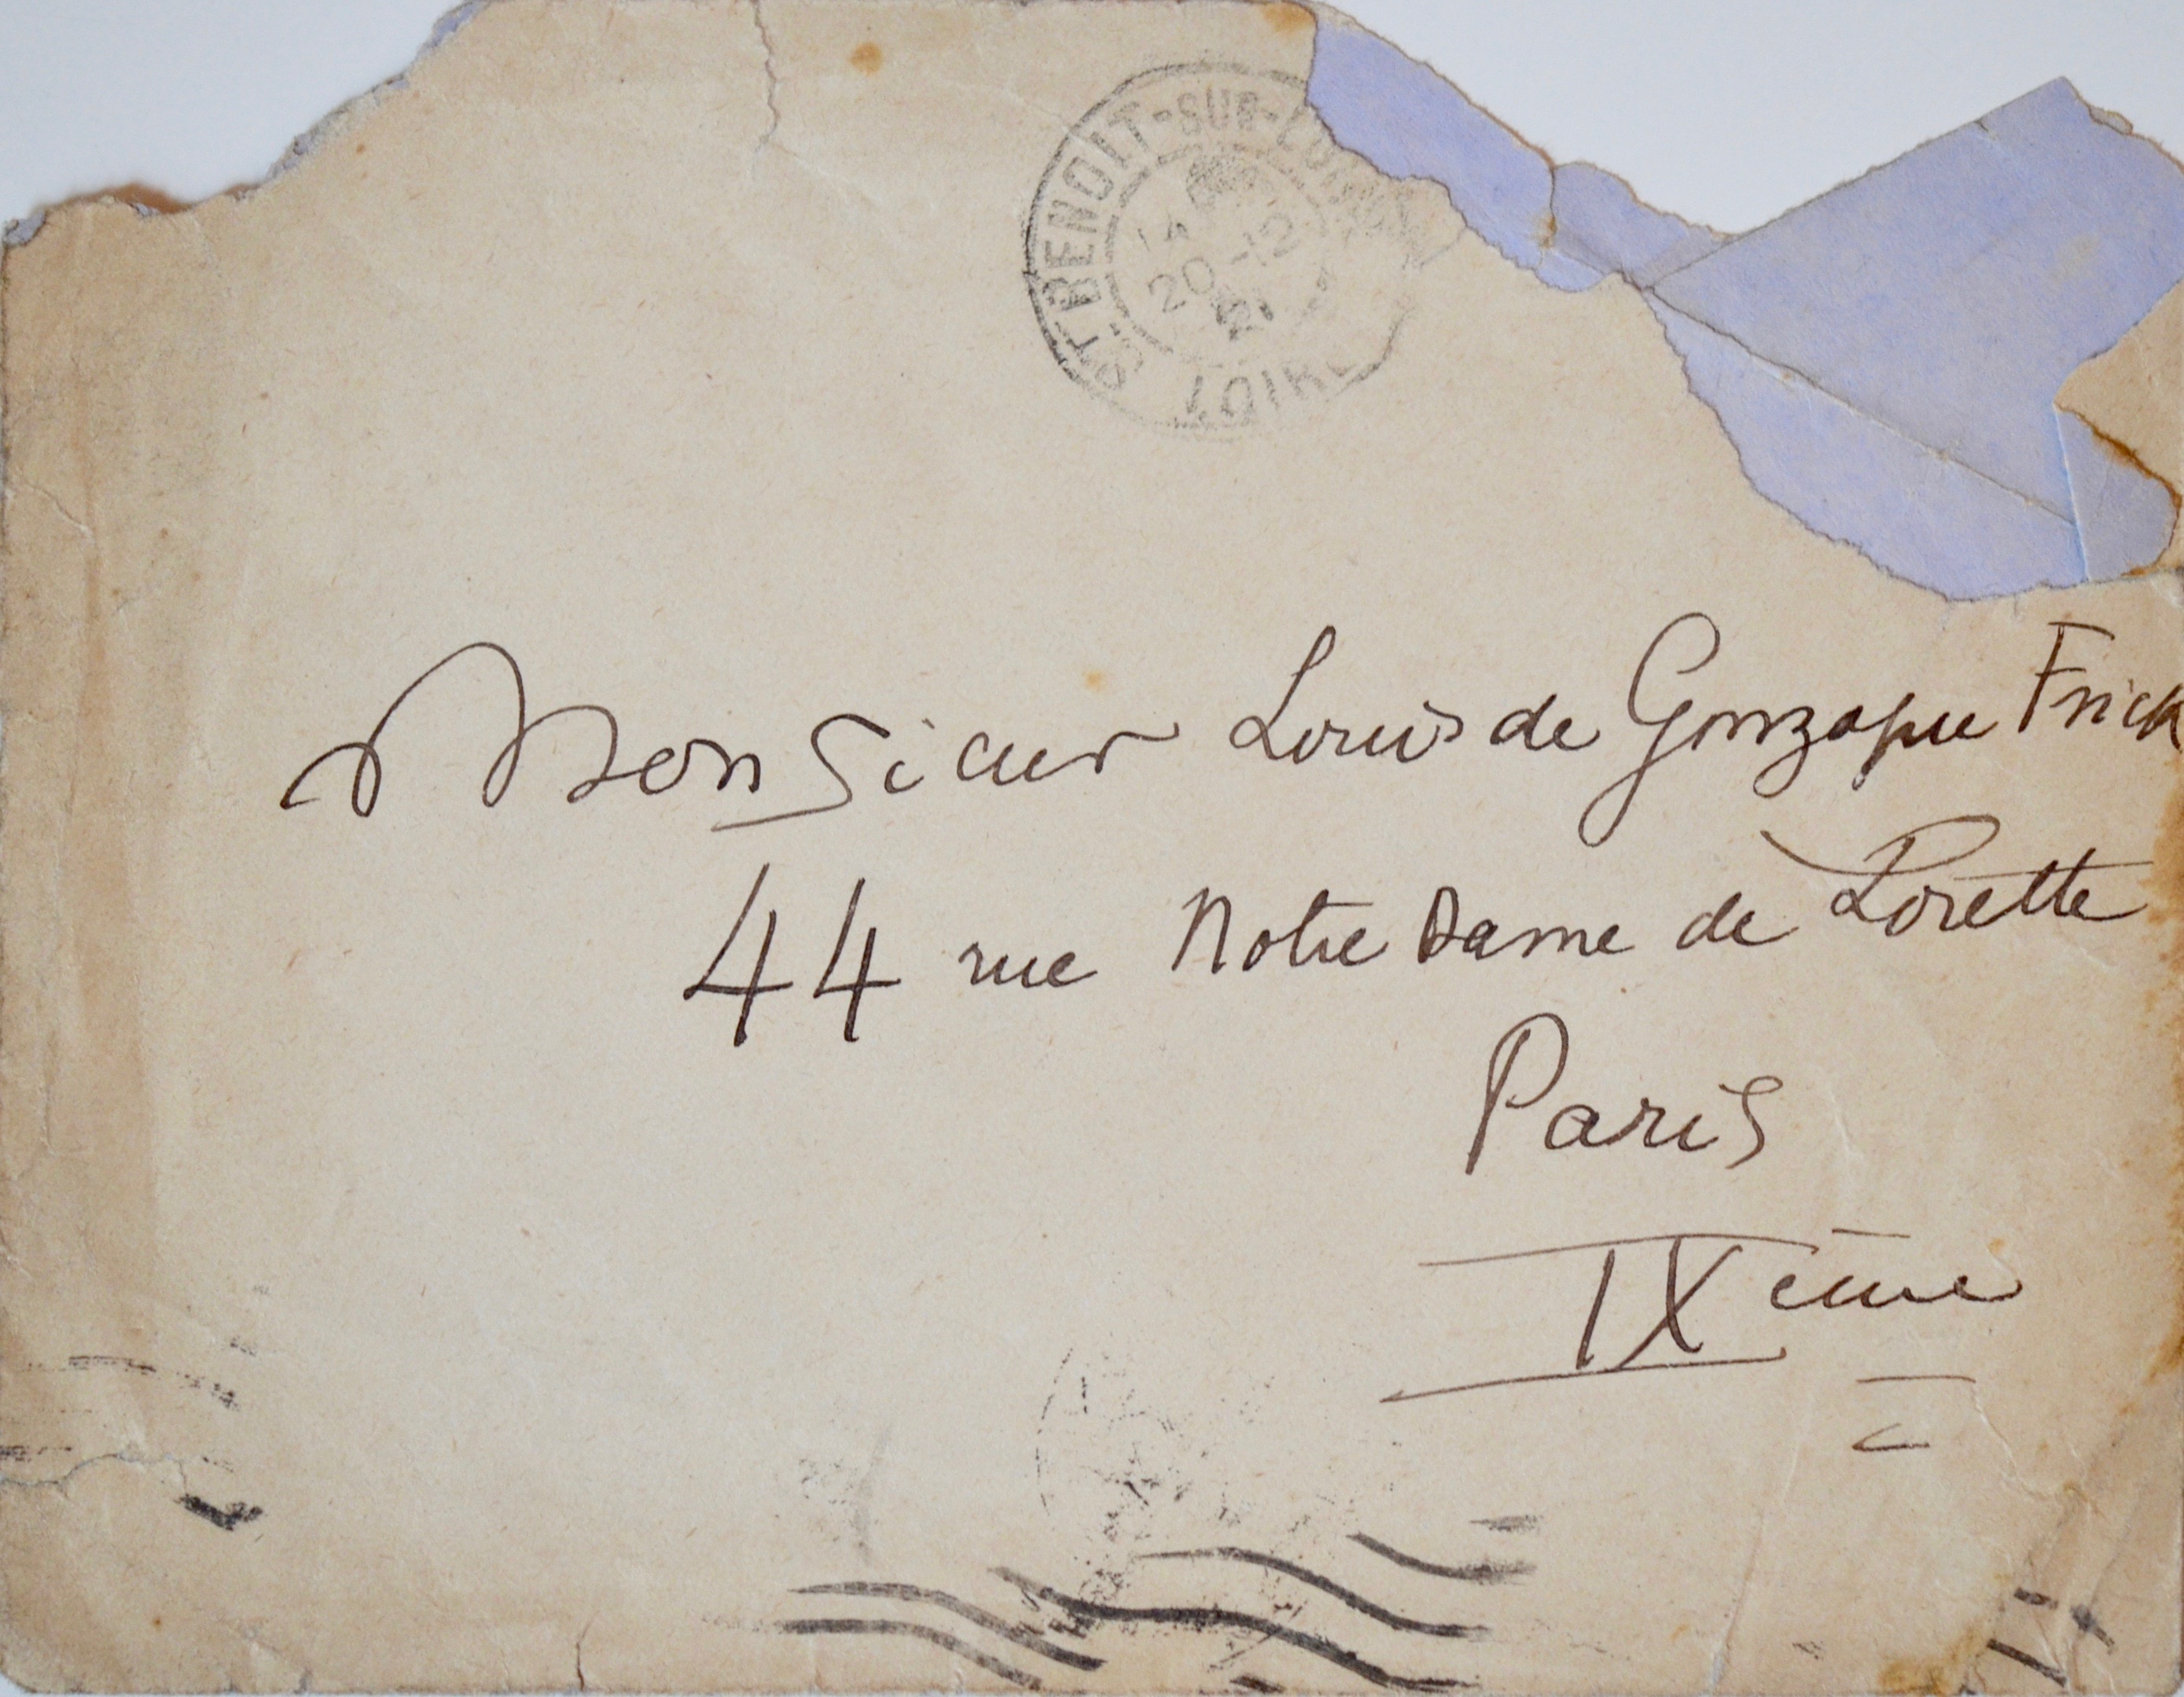 ST BENOIT-SUR-LOIRE
20-12
21
LOIRET
Monsieur Louis de Gonzague Frick
44 rue Notre Dame de Lorette
Paris
IXème